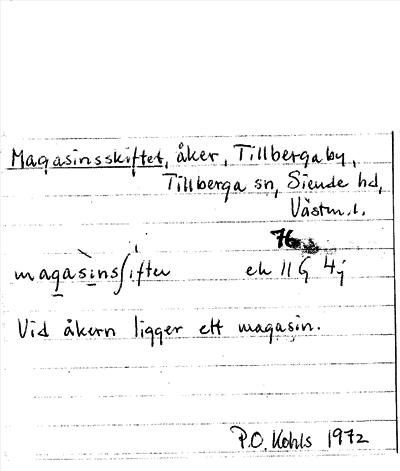 Magasinsskiftet, åker, Tillbergaby,
Tillberga sn, Siende hd,
Västm. l.
76
magasinsʃiften ek 11 G 4j
Vid åkern ligger ett magasin.
P.O. Kohls 1972